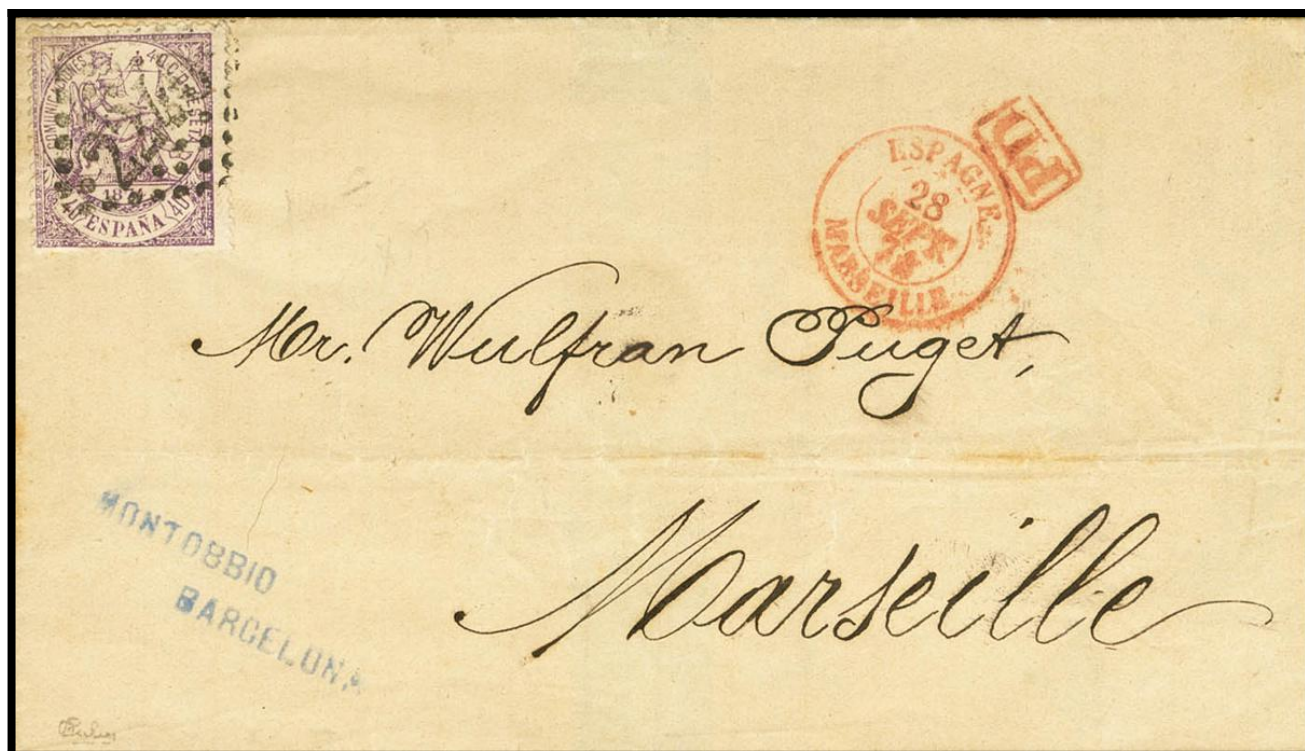 COMUNICACIONES 40 C. D. PESETA
ESPAÑA
40
40
PD
ESPAGNE
28
SEPT
74
MARSEILLE
Mr. Wulfran Puget,
Marseille
MONTOBBIO
BARCELONA